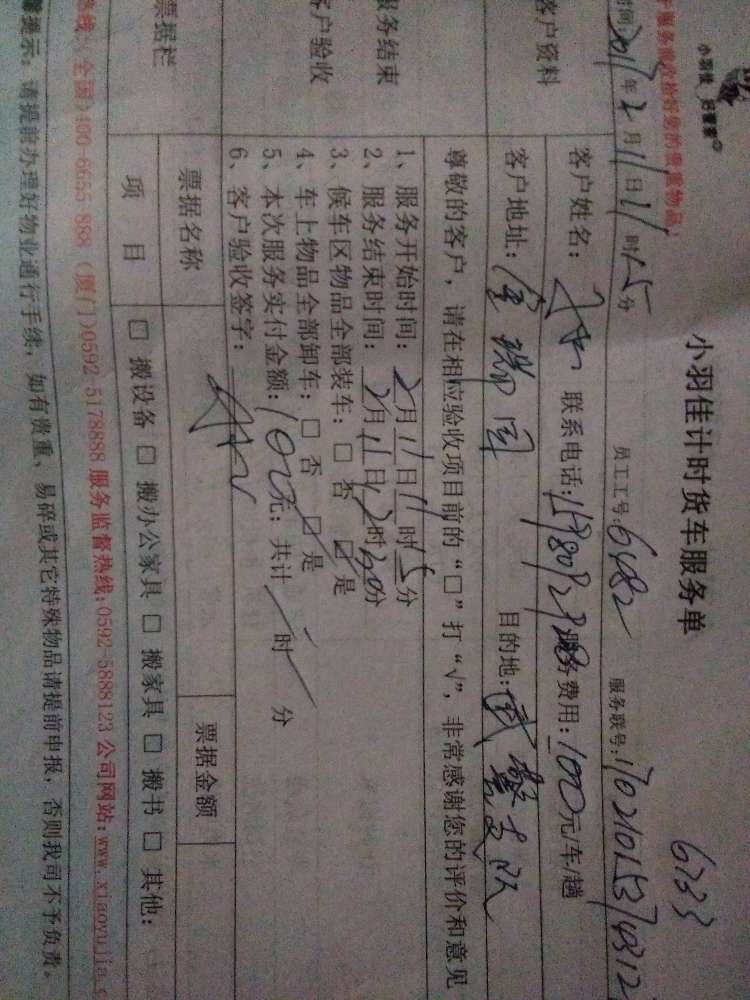 小羽佳计时货车服务单
6733
小羽佳 好管家
服务前收拾好您的贵重物品!
时间 年2月11日11时15分 员工工号:6482 服务联号:
客户资料
客户姓名: 联系电话: 服务费用:100元/车/趟
客户地址:金瑞园 目的地:武警支队
服务结束
客户验收
尊敬的客户,请在相应验收项目前的“□”打“√”,非常感谢您的评价和意见
1、服务开始时间:2月11日11时15分
2、服务结束时间:2月11日12时20分
3、候车区物品全部装车:□ 否 ☑ 是
4、车上物品全部卸车:□ 否 ☑ 是
5、本次服务实付金额:100元;共计 时 分
6、客户验收签字:
票据栏
票据名称 票据金额
项 目 □ 搬设备 □ 搬办公家具 □ 搬家具 □ 搬书 □ 其他:
热线:(全国)400-6655-888 (厦门)0592-5178888 服务监督热线:0592-5888123 公司网站:www.xiaoyujia.c
馨提示:请提前办理好物业通行手续,如有贵重、易碎或其它特殊物品请提前申报,否则我司不予负责。